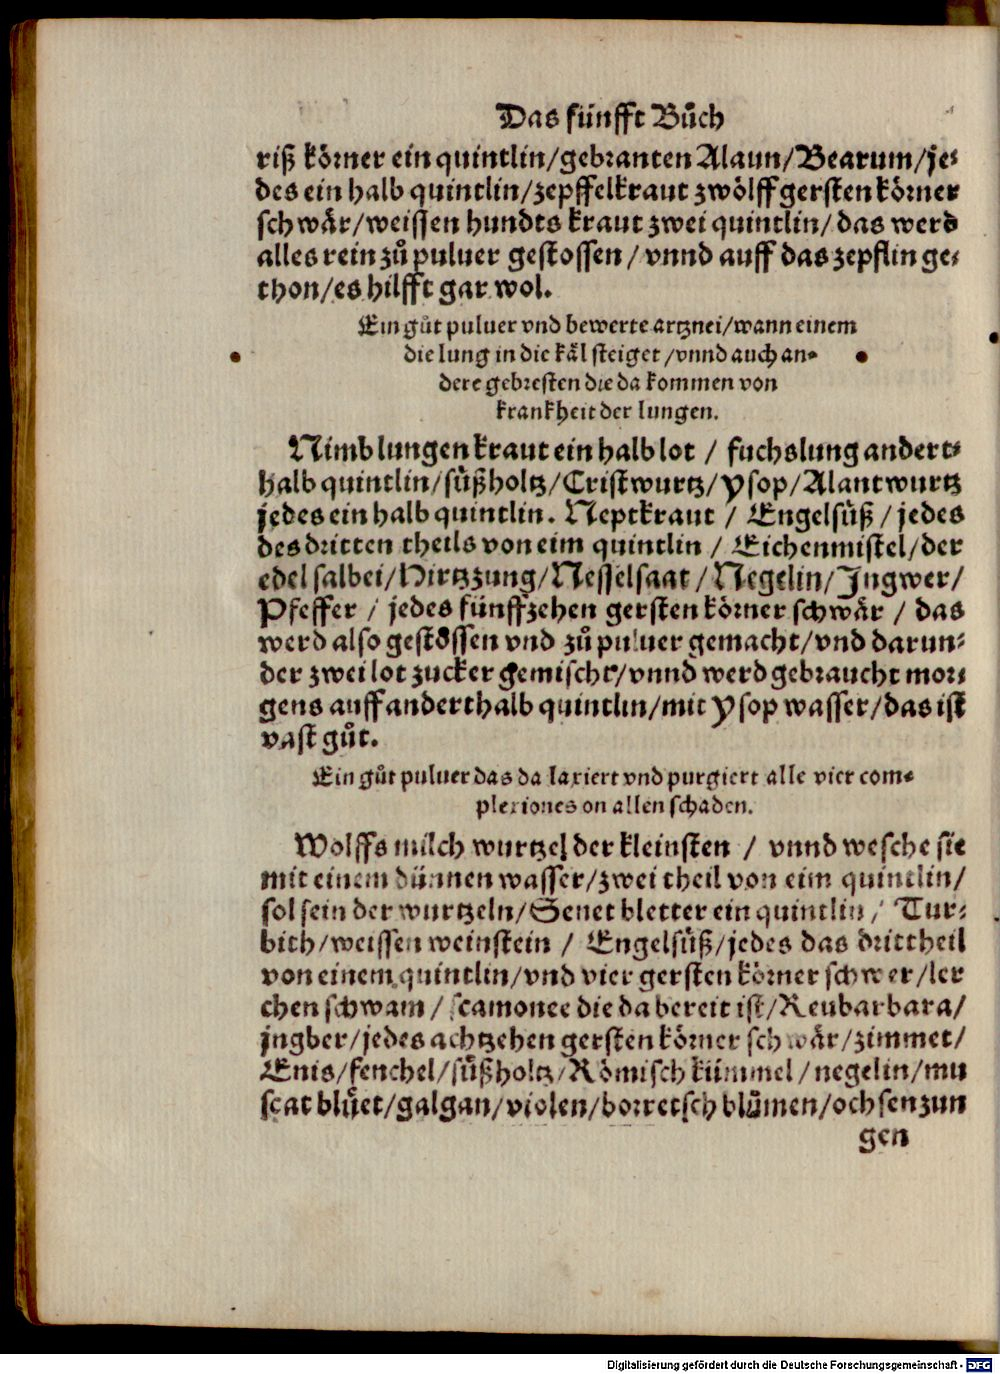 Das fünfft Bůch
riß körner ein quintlin/gebranten Alaun/Bearum/je⸗
des ein halb quintlin/zepffelkraut zwölff gersten körner
schwår/weissen hundts kraut zwei quintlin/das werd
alles rein zů puluer gestossen/vnnd auff das zepflin ge⸗
thon/es hilfft gar wol.
Ein gůt puluer vnd bewerte artznei/wann einem
die lung in die kål steiget/vnnd auch an⸗
dere gebresten die da kommen von
kranckheit der lungen.
Nimb lungen kraut ein halb lot/fuchslung andert⸗
halb quintlin/sůßholtz/Cristwurtz/Ysop/Alantwurtz
jedes ein halb quintlin. Neptkraut/Engelsůß/jedes
des dritten theils von eim quintlin/Eichenmistel/der
edel salbei/Hirtzzung/Nesselsaat/Negelin/Jngwer/
Pfeffer/jedes fünffzehen gersten körner schwår/das
werd also gestossen vnd zů puluer gemacht/vnd darun⸗
der zwei lot zucker gemischt/vnnd werd gebraucht mor⸗
gens auff anderthalb quintlin/mit Ysop wasser/das ist
vast gůt.
Ein gůt puluer das da laxiert vnd purgiert alle vier com⸗
plexiones on allen schaden.
Wolffs milch wurtzel der kleinsten/vnnd wesche sie
mit einem dünnen wasser/zwei theil von eim quintlin/
sol sein der wurtzeln/Senet bletter ein quintlin/Tur⸗
bith/weissen weinstein/Engelsůß/jedes das drittheil
von einem quintlin/vnd vier gersten körner schwer/ler
chen schwam/scamonee die da bereit ist/Reubarbara/
jngber/jedes achtzehen gersten körner schwår/zimmet/
Enis/fenchel/sůßholtz/Römisch kümmel/negelin/mu
scat blůet/galgan/violen/borretsch blůmen/ochsenzun
gen
Digitalisierung gefördert durch die Deutsche Forschungsgemeinschaft - DFG